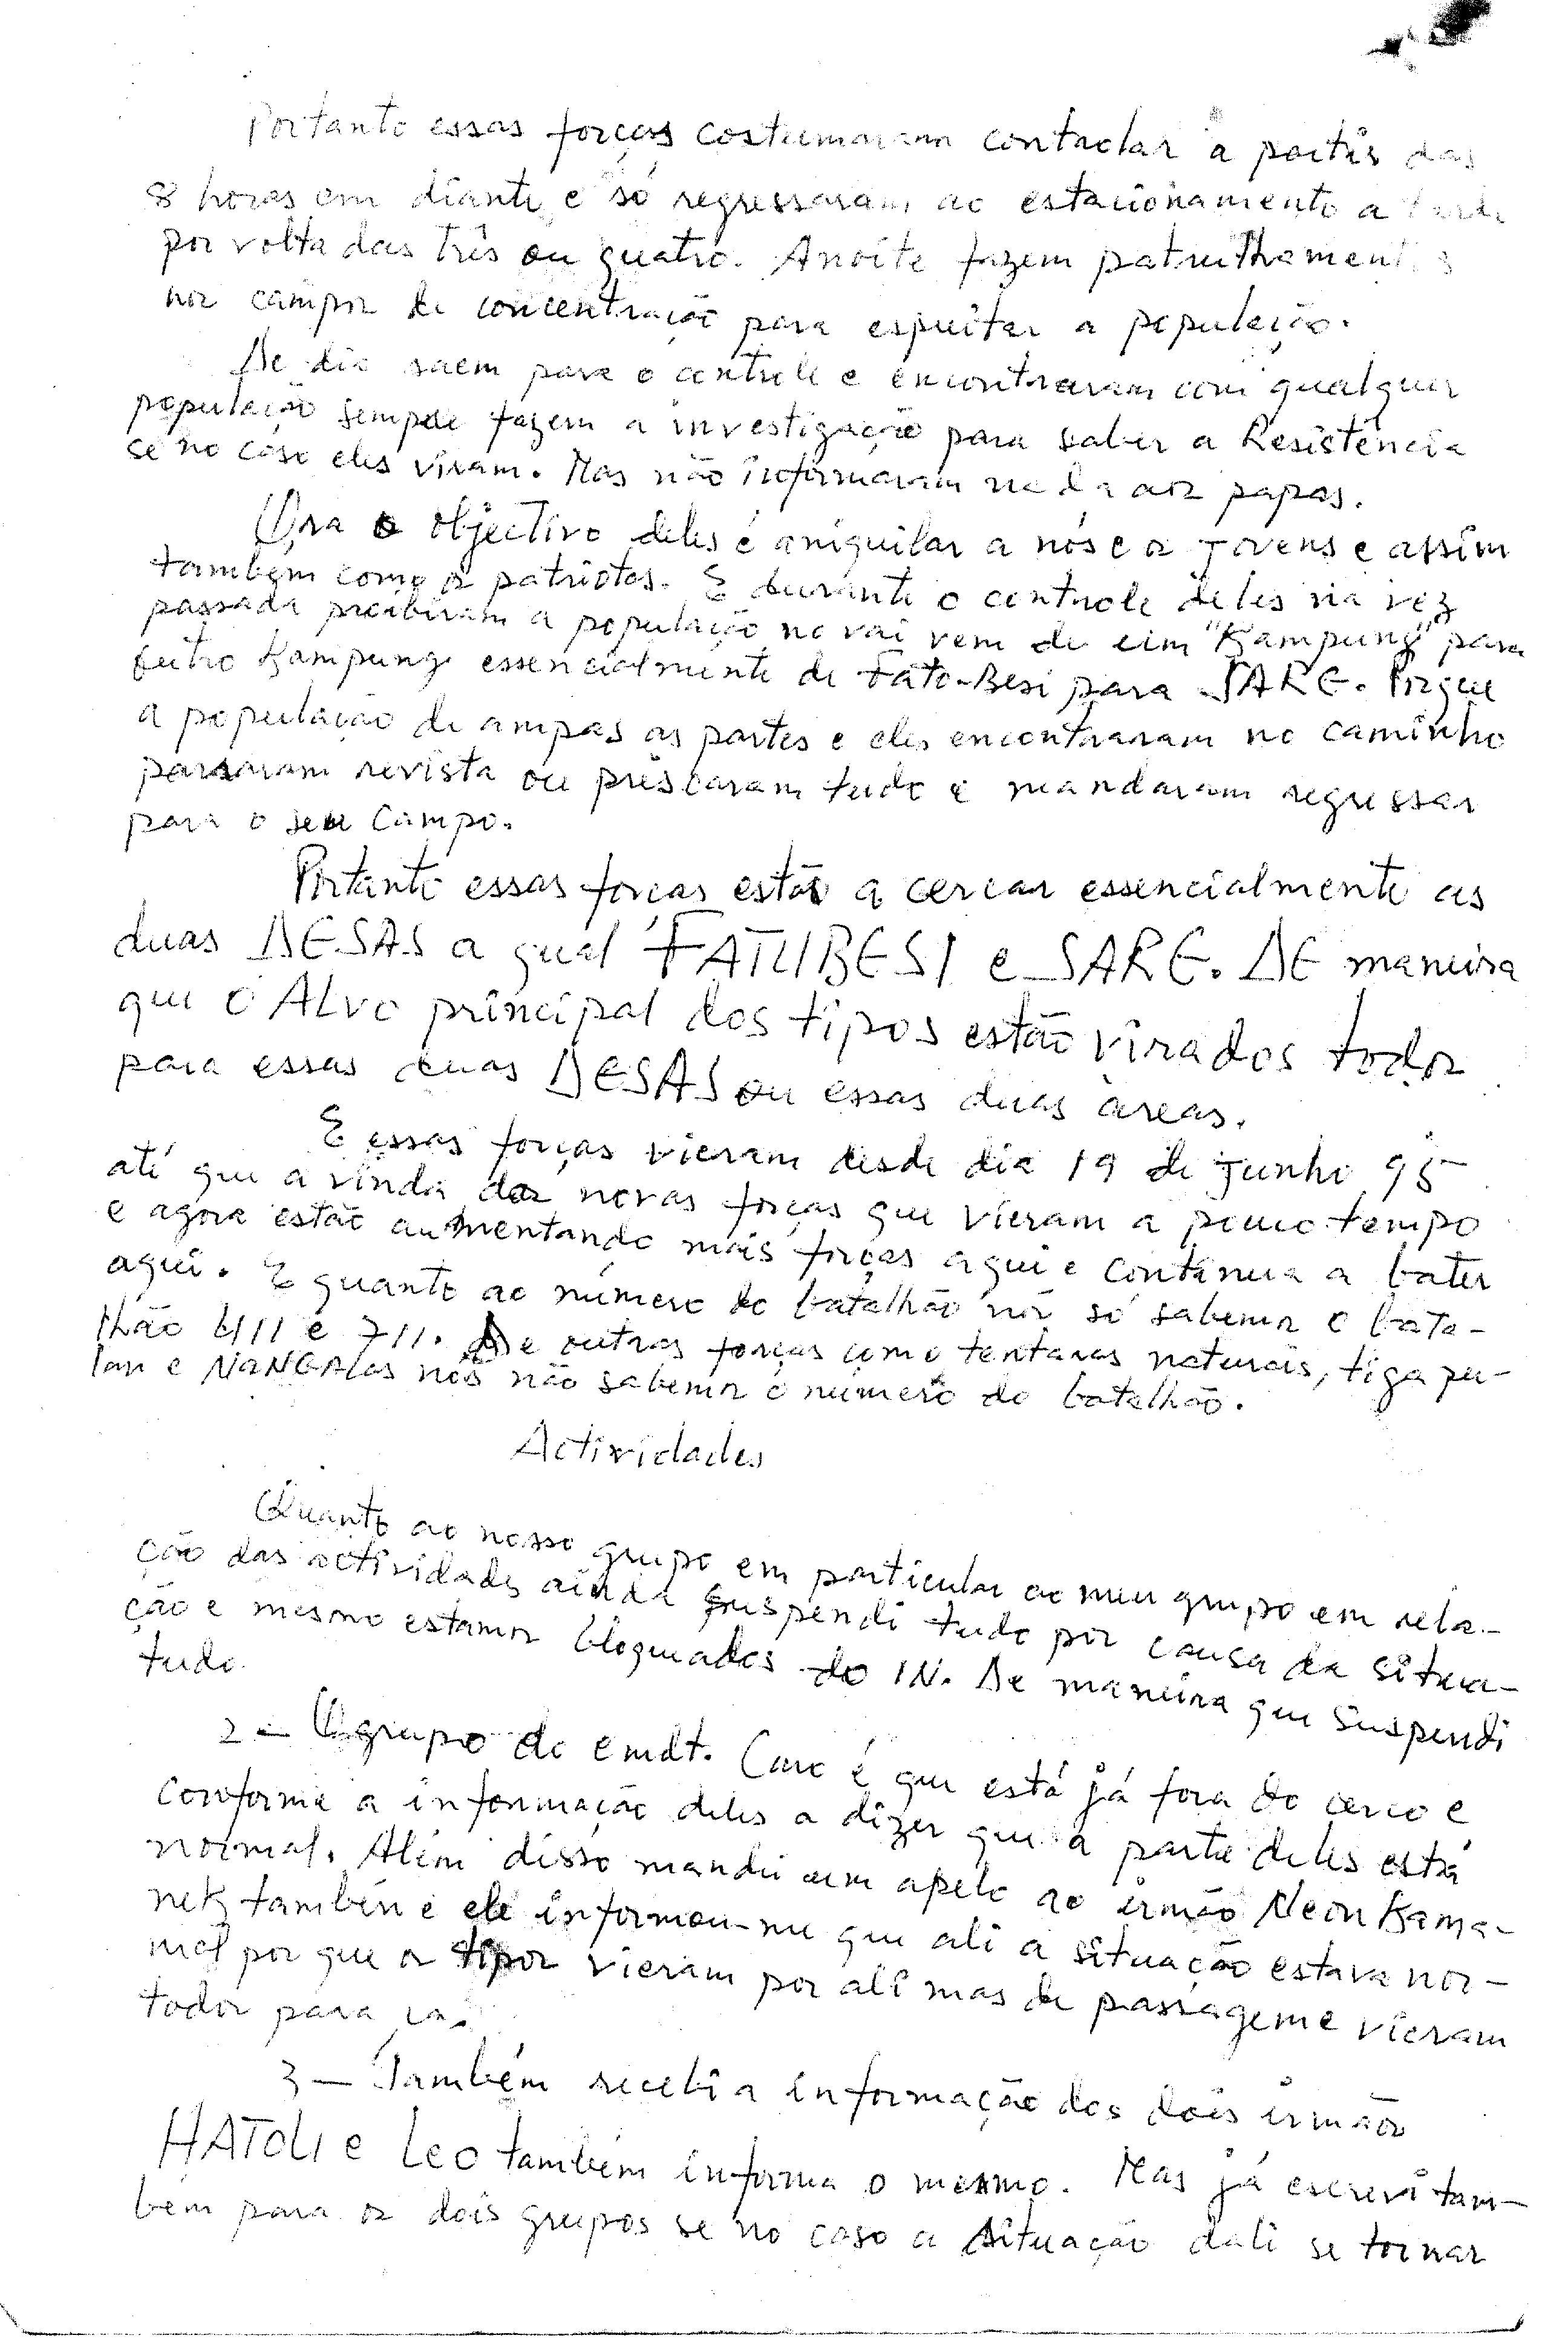 Portanto essas forças costumaram controlar a partir das
8 horas em diante e só regressaram ao estacionamento a tarde
por volta das três ou quatro. Anoite fazem patrulhamentos
nos campos de concentração para espreitar a população.
De dia saem para o controle e encontraram com qualquer
população sempre fazem a investigação para saber a Resistência
se no caso eles viram. Mas não informaram nada aos papas.
Ora o objectivo deles é aniquilar a nós e os jovens e assim
também como os patriotas. E durante o controle deles na vez
passada proibiram a população no vai vem de um "Kampung" para
outro Kampung essencialmente de Fato-Besi para SARE. Porque
a população de ampas as partes e eles encontraram no caminho
passaram revista ou prescaram tudo e mandaram regressar
para o seu Campo.
Portanto essas forças estão a cercar essencialmente as
duas DESAS a qual FATUBESI e SARE. DE maneira
que o ALVO principal dos tipos estão virados todos
para essas duas DESAS ou essas duas àreas.
E essas forças vieram desde dia 19 de Junho 95
até que a vinda das novas forças que vieram a pouco tempo
e agora estão aumentando mais forças aqui e continua a bater
aqui. E quanto ao número do batalhão nós só sabemos o bata-
lhão 611 e 711. De outras forças como tentaras naturais, tiga pu-
lau e NANGALAS nós não sabemos o número do batalhão.
Actividades
Quanto ao nosso grupo em particular ao meu grupo em rela-
ção das actividades ainda suspendi tudo por causa da situa-
ção e mesmo estamos bloqueados do IN. De maneira que suspendi
tudo.
2 - O grupo do cmdt. Caro é que está já fora do cerco e
conforme a informação deles a dizer que a parte deles está
normal. Além disso mandei um apelo ao irmão Neon Kama-
nek também e ele informou-me que ali a situação estava nor-
mal por que os tipos vieram por ali mas de passageme vieram
todos para ca.
3 - Também recebi a informação dos dois irmãos
HATOLI e Leo também informa o mesmo. Mas já escrevi tam-
bém para os dois grupos se no caso a situação dali se tornar